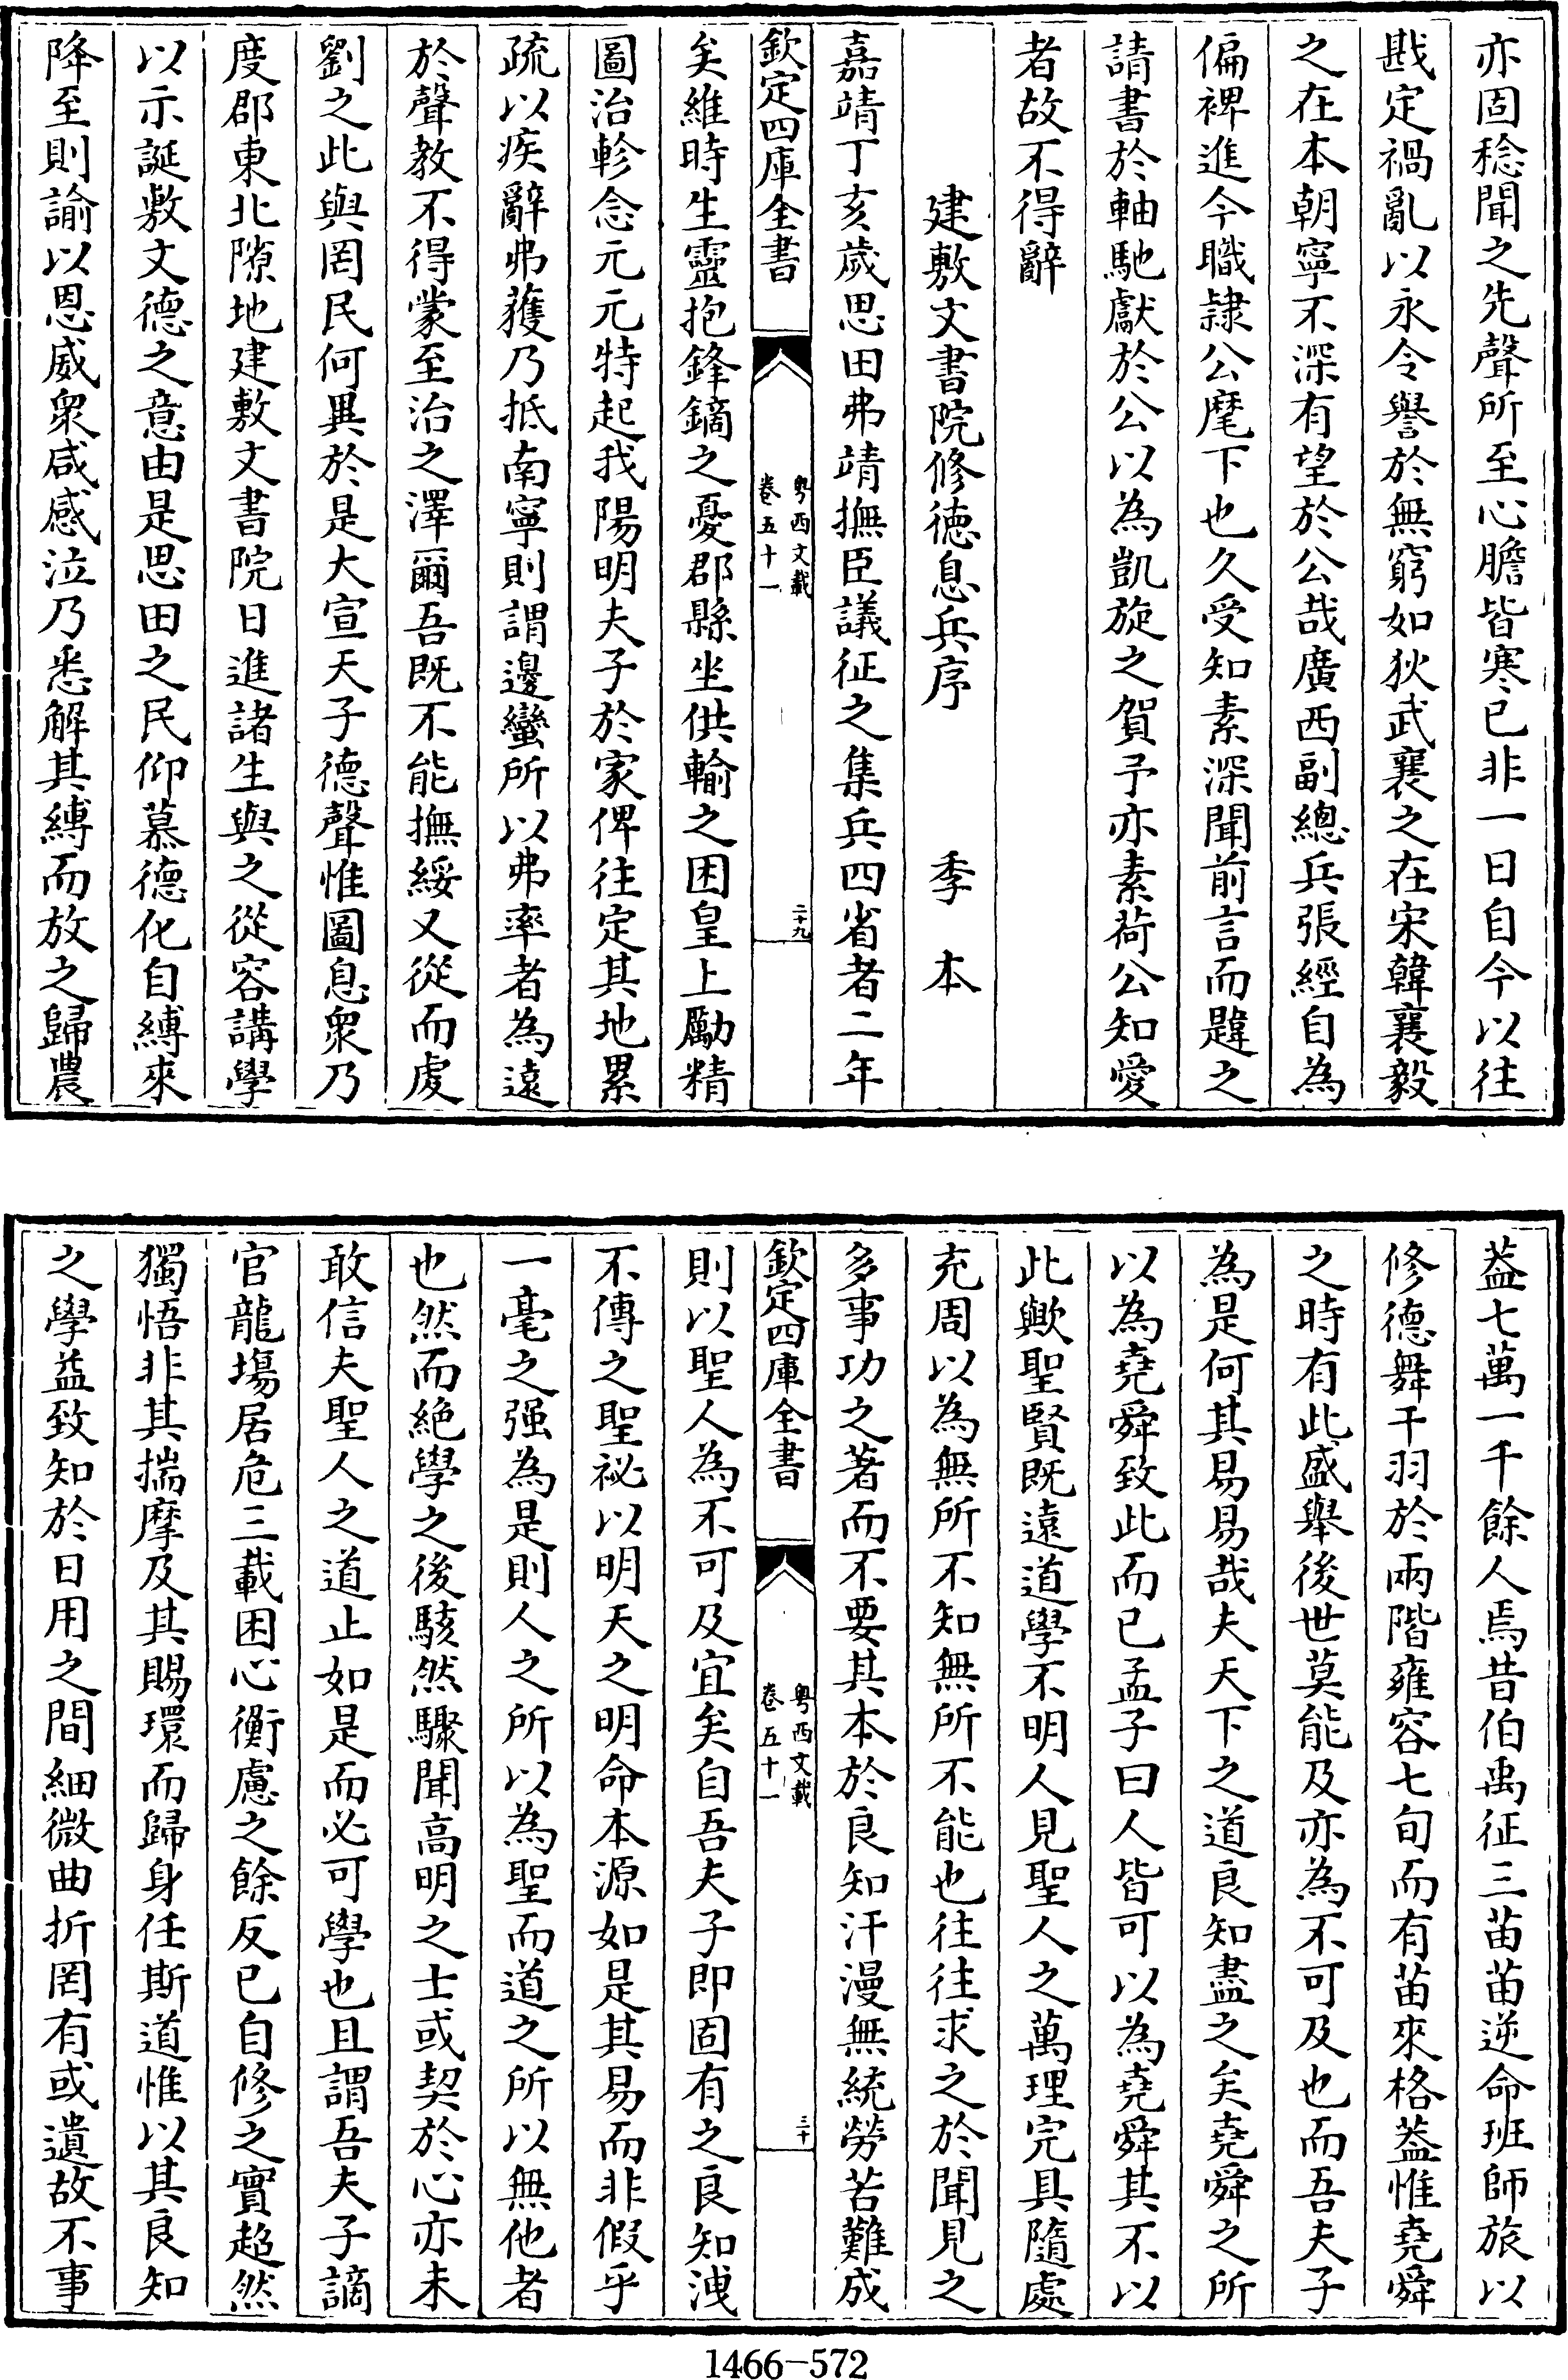 亦固稔聞之先聲所至心膽皆寒已非一日自今以往
戡定禍亂以永令譽於無窮如狄武襄之在宋韓襄毅
之在本朝寧不深有望於公哉廣西副總兵張經自為
偏裨進今職隷公麾下也久受知素深聞前言而韙之
請書於軸馳獻於公以為凱旋之賀予亦素荷公知愛
者故不得辭
建敷文書院修德息兵序 季本
嘉靖丁亥歲思田弗靖撫臣議征之集兵四省者二年
欽定四庫全書 粤西文載 卷五十一 二十九
矣維時生靈抱鋒鏑之憂郡縣坐供輸之困皇上勵精
圖治軫念元元特起我陽明夫子於家俾往定其地累
疏以疾辭弗獲乃抵南寧則謂邊蠻所以弗率者為遠
於聲教不得蒙至治之澤爾吾既不能撫綏又從而虔
劉之此與罔民何異於是大宣天子德聲惟圖息衆乃
度郡東北隙地建敷文書院日進諸生與之從容講學
以示誕敷文德之意由是思田之民仰慕德化自縛來
降至則諭以恩威衆咸感泣乃悉解其縛而放之歸農
葢七萬一千餘人焉昔伯禹征三苗苗逆命班師旅以
修德舞干羽於兩階雍容七旬而有苗來格葢惟堯舜
之時有此盛舉後世莫能及亦為不可及也而吾夫子
為是何其易易哉夫天下之道良知盡之矣堯舜之所
以為堯舜致此而已孟子曰人皆可以為堯舜其不以
此歟聖賢既遠道學不明人見聖人之萬理完具隨處
充周以為無所不知無所不能也往往求之於聞見之
多事功之著而不要其本於良知汗漫無統勞苦難成
欽定四庫全書 粤西文載 卷五十一 三十
則以聖人為不可及宜矣自吾夫子即固有之良知洩
不傳之聖祕以明天之明命本源如是其易而非假乎
一毫之强為是則人之所以為聖而道之所以無他者
也然而絶學之後駭然驟聞高明之士或契於心亦未
敢信夫聖人之道止如是而必可學也且謂吾夫子謫
官龍塲居危三載困心衡慮之餘反已自修之實超然
獨悟非其揣摩及其賜環而歸身任斯道惟以其良知
之學益致知於日用之間細微曲折罔有或遺故不事
1466-572